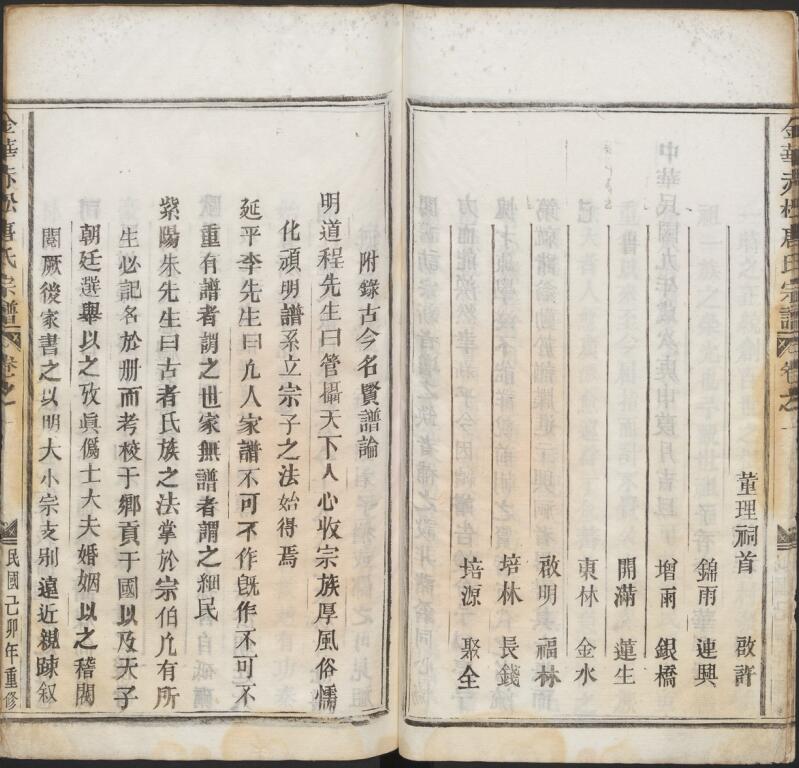 董理祠首 啟許
錦雨 連興
增雨 銀橋
開滿 蓮生
東林 金水
啟明 福林
培林 長錢
培源 聚全
附錄古今名賢譜論
明道程先生曰管攝天下人心收宗族厚風俗懦
化頑明譜系立宗子之法始得焉
延平李先生曰凢人家譜不可不作旣作不可不
重有譜者謂之世家無譜者謂之細民
紫陽朱先生曰古者氏族之法掌於宗伯凢有所
生必記名於册而考校于鄉貢于國以及天子
朝廷選舉以之攷眞僞士大夫婚姻以之稽閥
閱厥後家書之以明大小宗支别遠近親疎叙
金華赤松唐氏宗譜 卷之一
民國己卯年重修